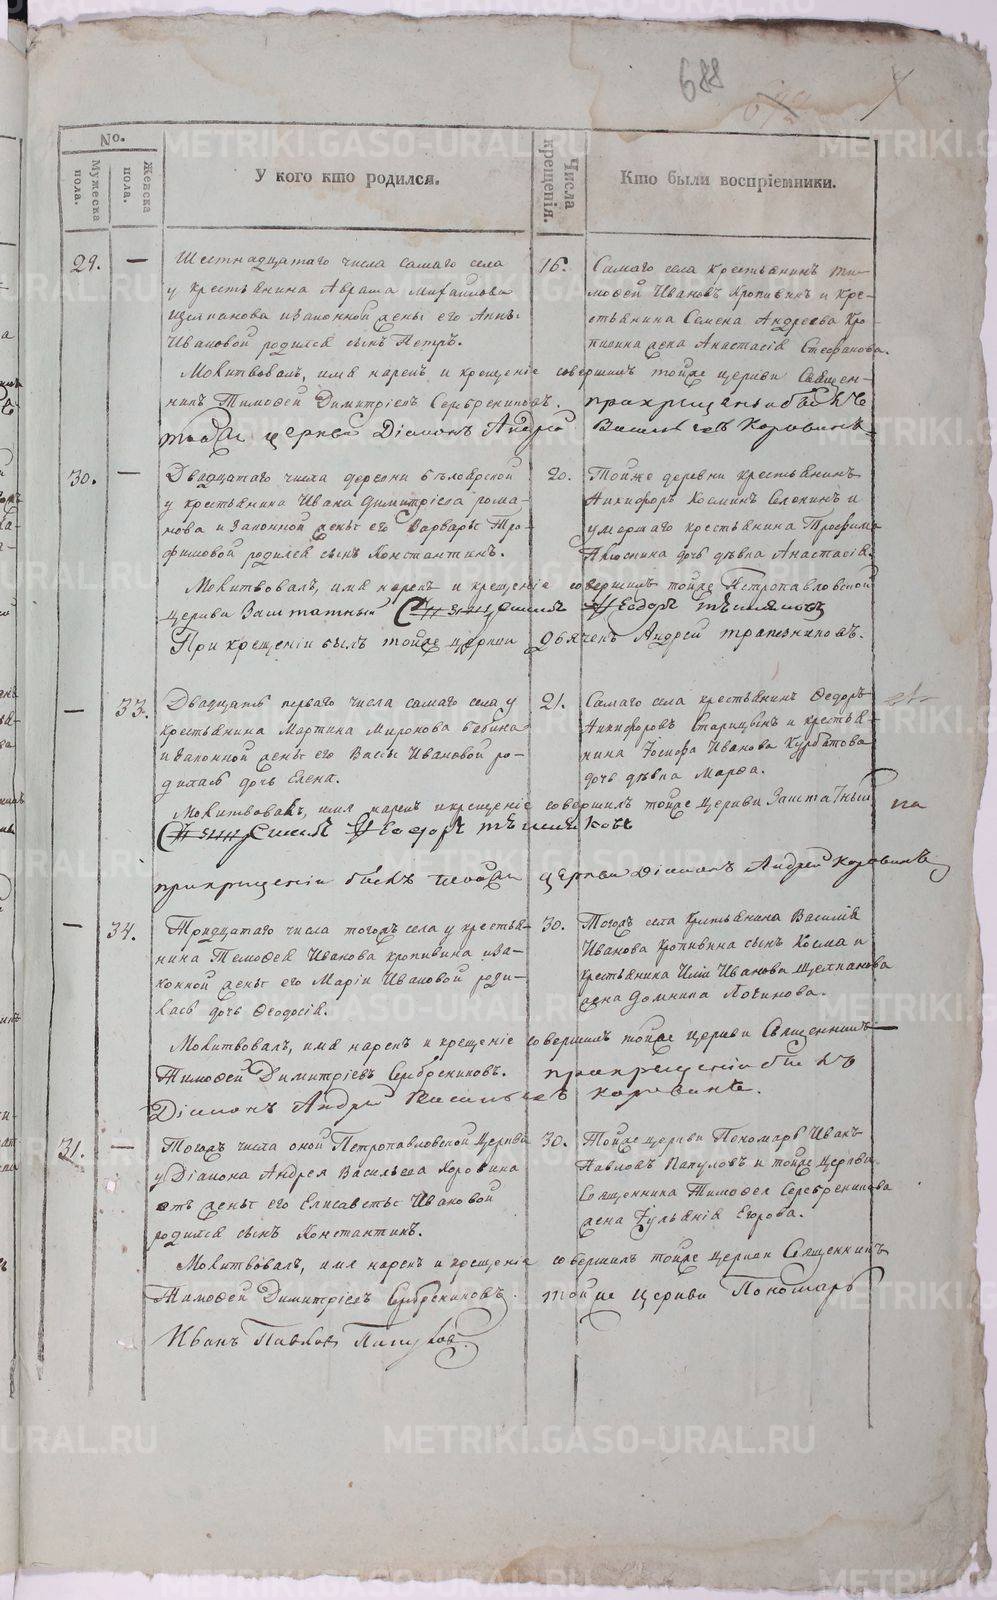 688
No.
Мужеска пола.
Женска пола.
У кого кто родился.
Числа крещенія.
Кто были воспріемники.
29. —
Шестнадцатаго числа самаго села
у крестьянина Аврама Михайлова
и законной жены его Анны
Ивановой родился сынъ Петръ.
16.
Самаго села крестьянинъ Ти-
моѳей Ивановъ Кропивинъ и кре-
стьянина Семена Андреева Кро-
пивина жена Анастасія Стефанова.
Молитвовалъ, имя нарекъ и крещеніе совершилъ тойже церкви Священ-
никъ Тимоѳей Димитріевъ Серебрениковъ. при крещеніи былъ
тойже церкви Діаконъ Андрей Васильевъ Коровинъ
30. —
Двадцатаго числа деревни Бѣлоярской
у крестьянина Ивана Димитріева Рома-
нова и законной жены его Варвары Тро-
фимовой родился сынъ Константинъ.
20.
Тойже деревни крестьянинъ
Никифоръ Косминъ и
умершаго крестьянина Трофима
дочь дѣвка Анастасія.
Молитвовалъ, имя нарекъ и крещеніе совершилъ тойже Петропавловской
церкви Заштатный Священникъ Ѳеодоръ
При крещеніи былъ тойже церкви Андрей Трапезниковъ.
— 33.
Двадцать перваго числа самаго села у
крестьянина Мартина Миронова Бабина
и законной жены его Вассы Ивановой ро-
дилась дочь Елена.
21.
Самаго села крестьянинъ Ѳедоръ
Никифоровъ Старицынъ и крестья-
нина Іосифа Иванова Курбатова
дочь дѣвка Марѳа.
Молитвовалъ, имя нарекъ и крещеніе совершилъ тойже церкви Заштатный
Ѳеодоръ
при крещеніи былъ тойже церкви Діаконъ Андрей Коровинъ
— 34.
Тридцатаго числа тогожъ села у крестья-
нина Тимоѳея Иванова Кропивина и за-
конной жены его Маріи Ивановой роди-
лась дочь Ѳеодосія.
30.
Тогожъ села крестьянина Василія
Иванова Кропивина сынъ Косма и
крестьянина Иліи Иванова Щепанова
жена Домника Логинова.
Молитвовалъ, имя нарекъ и крещеніе совершилъ тойже церкви Священникъ
Тимоѳей Димитріевъ Серебрениковъ. при крещеніи былъ
Діаконъ Андрей Васильевъ Коровинъ.
31. —
Тогожъ числа оной Петропавловской церкви
у Діакона Андрея Васильева Коровина
отъ жены его Елисаветы Ивановой
родился сынъ Константинъ.
30.
Тойже церкви Пономарь Иванъ
Павловъ Папуловъ и тойже церкви
Священника Тимоѳея Серебреникова
жена Іуліанія Егорова.
Молитвовалъ, имя нарекъ и крещеніе совершилъ тойже церкви Священникъ
Тимоѳей Димитріевъ Серебрениковъ. тойже церкви Пономарь
Иванъ Павловъ Папуловъ.
METRIKI.GASO-URAL.RU